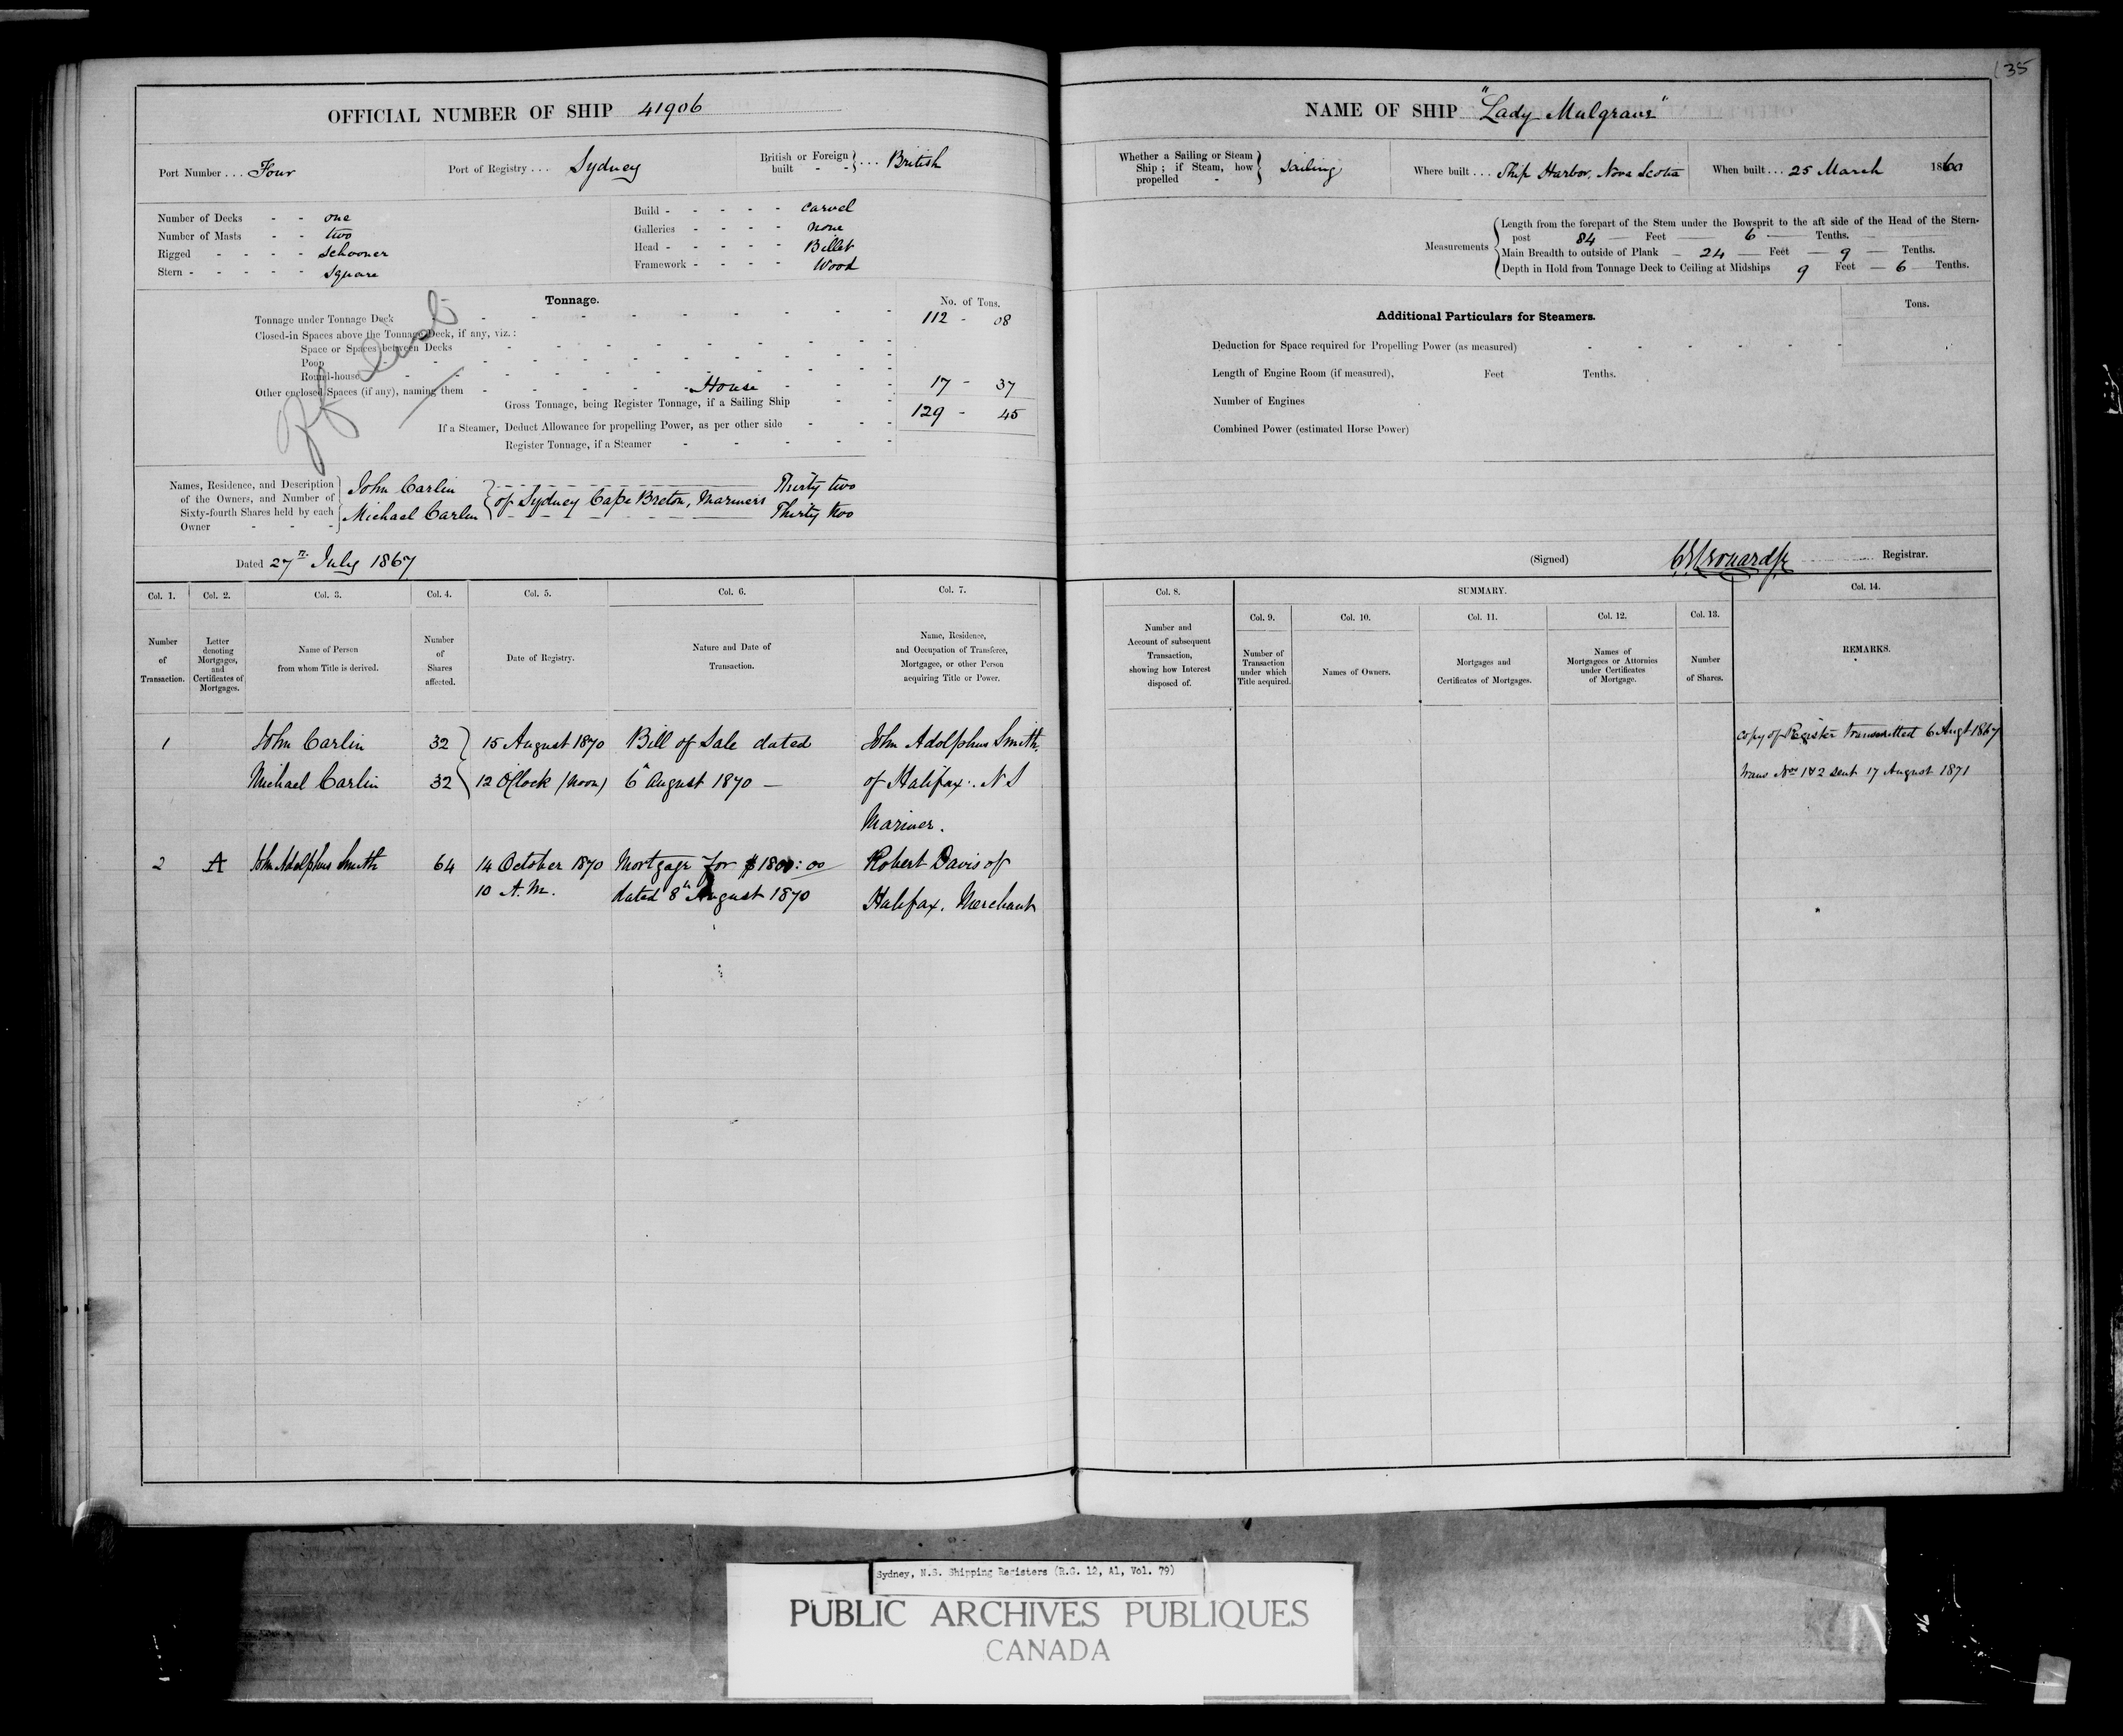 35
OFFICIAL NUMBER OF SHIP 41906
Port Number . . . Four
Port of Registry . . . Sydney
British or Foreign built - - } . . . British
Number of Decks - - one
Number of Masts - - two
Rigged - - - - schooner
Stern - - - - - square
Build - - - - - Carvel
Galleries - - - - none
Head - - - - - Billet
Framework - - - - Wood
Off List
Tonnage.
No. of Tons.
Tonnage under Tonnage Deck 112 - 08
Closed-in Spaces above the Tonnage Deck, if any, viz.:
Space or Spaces between Decks
Poop
Round-house
Other enclosed Spaces (if any), naming them - House - 17 - 37
Gross Tonnage, being Register Tonnage, if a Sailing Ship 129 - 45
If a Steamer, Deduct Allowance for propelling Power, as per other side
Register Tonnage, if a Steamer
Names, Residence, and Description of the Owners, and Number of Sixty-fourth Shares held by each Owner - - -
John Carlin
Michael Carlin
of Sydney Cape Breton, Mariners
Thirty two
Thirty two
Dated 27th July 1867
NAME OF SHIP "Lady Mulgrave"
Whether a Sailing or Steam Ship ; if Steam, how propelled - } Sailing
Where built . . . Ship Harbor, Nova Scotia
When built . . . 25 March 1860
Measurements
Length from the forepart of the Stem under the Bowsprit to the aft side of the Head of the Stern-
post 84 Feet 6 Tenths.
Main Breadth to outside of Plank 24 Feet 9 Tenths.
Depth in Hold from Tonnage Deck to Ceiling at Midships 9 Feet 6 Tenths.
Additional Particulars for Steamers.
Tons.
Deduction for Space required for Propelling Power (as measured)
Length of Engine Room (if measured), Feet Tenths.
Number of Engines
Combined Power (estimated Horse Power)
(Signed) Registrar.
Col. 1. Col. 2. Col. 3. Col. 4. Col. 5. Col. 6. Col. 7.
Number of Transaction.
Letter denoting Mortgages, and Certificates of Mortgages.
Name of Person from whom Title is derived.
Number of Shares affected.
Date of Registry.
Nature and Date of Transaction.
Name, Residence, and Occupation of Transferee, Mortgagee, or other Person acquiring Title or Power.
1 John Carlin 32 15 August 1870 Bill of Sale dated John Adolphus Smith,
Michael Carlin 32 12 O'Clock (Noon) 6th August 1870 — of Halifax. N S
Mariner.
2 A John Adolphus Smith 64 14 October 1870 Mortgage for $1800:00 Robert Davis of
10 A.M. dated 8th August 1870 Halifax, Merchant
Col. 8. SUMMARY. Col. 14.
Col. 9. Col. 10. Col. 11. Col. 12. Col. 13.
Number and Account of subsequent Transaction, showing how Interest disposed of.
Number of Transaction under which Title acquired.
Names of Owners.
Mortgages and Certificates of Mortgages.
Names of Mortgagees or Attornies under Certificates of Mortgage.
Number of Shares.
REMARKS.
Copy of Register transmitted 6 Augt 1867
Trans Nos 1 & 2 sent 17 August 1871
Sydney, N.S. Shipping Registers (R.G. 12, A1, Vol. 79)
PUBLIC ARCHIVES PUBLIQUES
CANADA